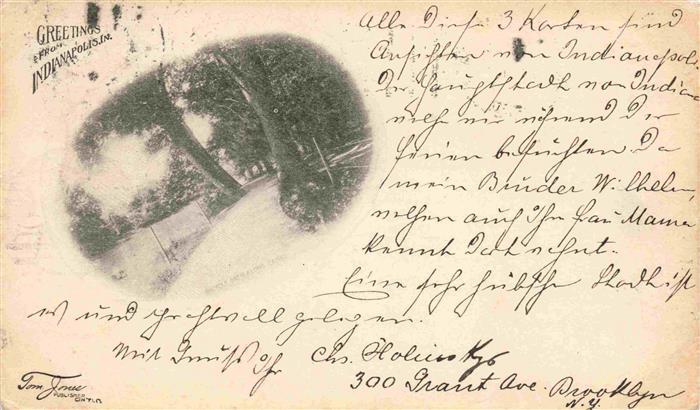 GREETINGS
FROM
INDIANAPOLIS, IN.
Alle Diese 3 Karten sind
Ansichten von Indianapolis
Der Hauptstadt von Indiana
welche wir während der
Ferien besuchten. Da
mein Bruder Wilhelm,
welchen auch Ihr Frau Mama
kennt dort wohnt.
Eine sehr hübsche Stadt ist
es und prachtvoll gelegen.
Mit Gruss Ihr Chs.
300 Grant Ave. Brooklyn
N.Y.
Tom Jones
PUBLISHER
CIN'TI. O.